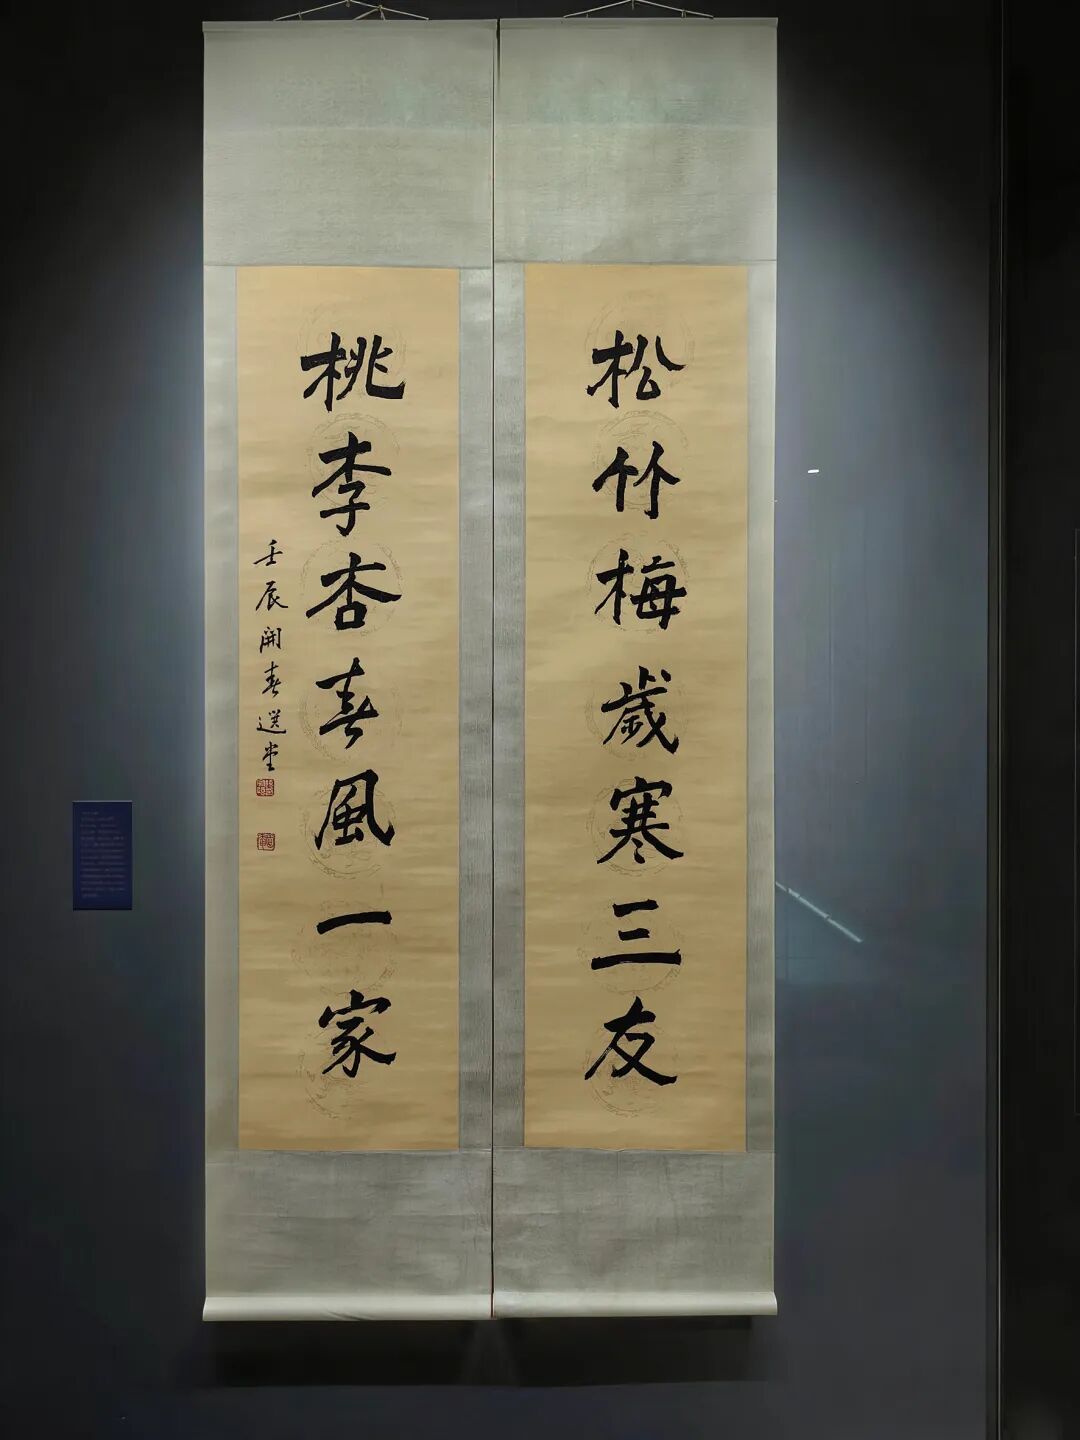 松竹梅歲寒三友
桃李杏春風一家
壬辰開春選堂